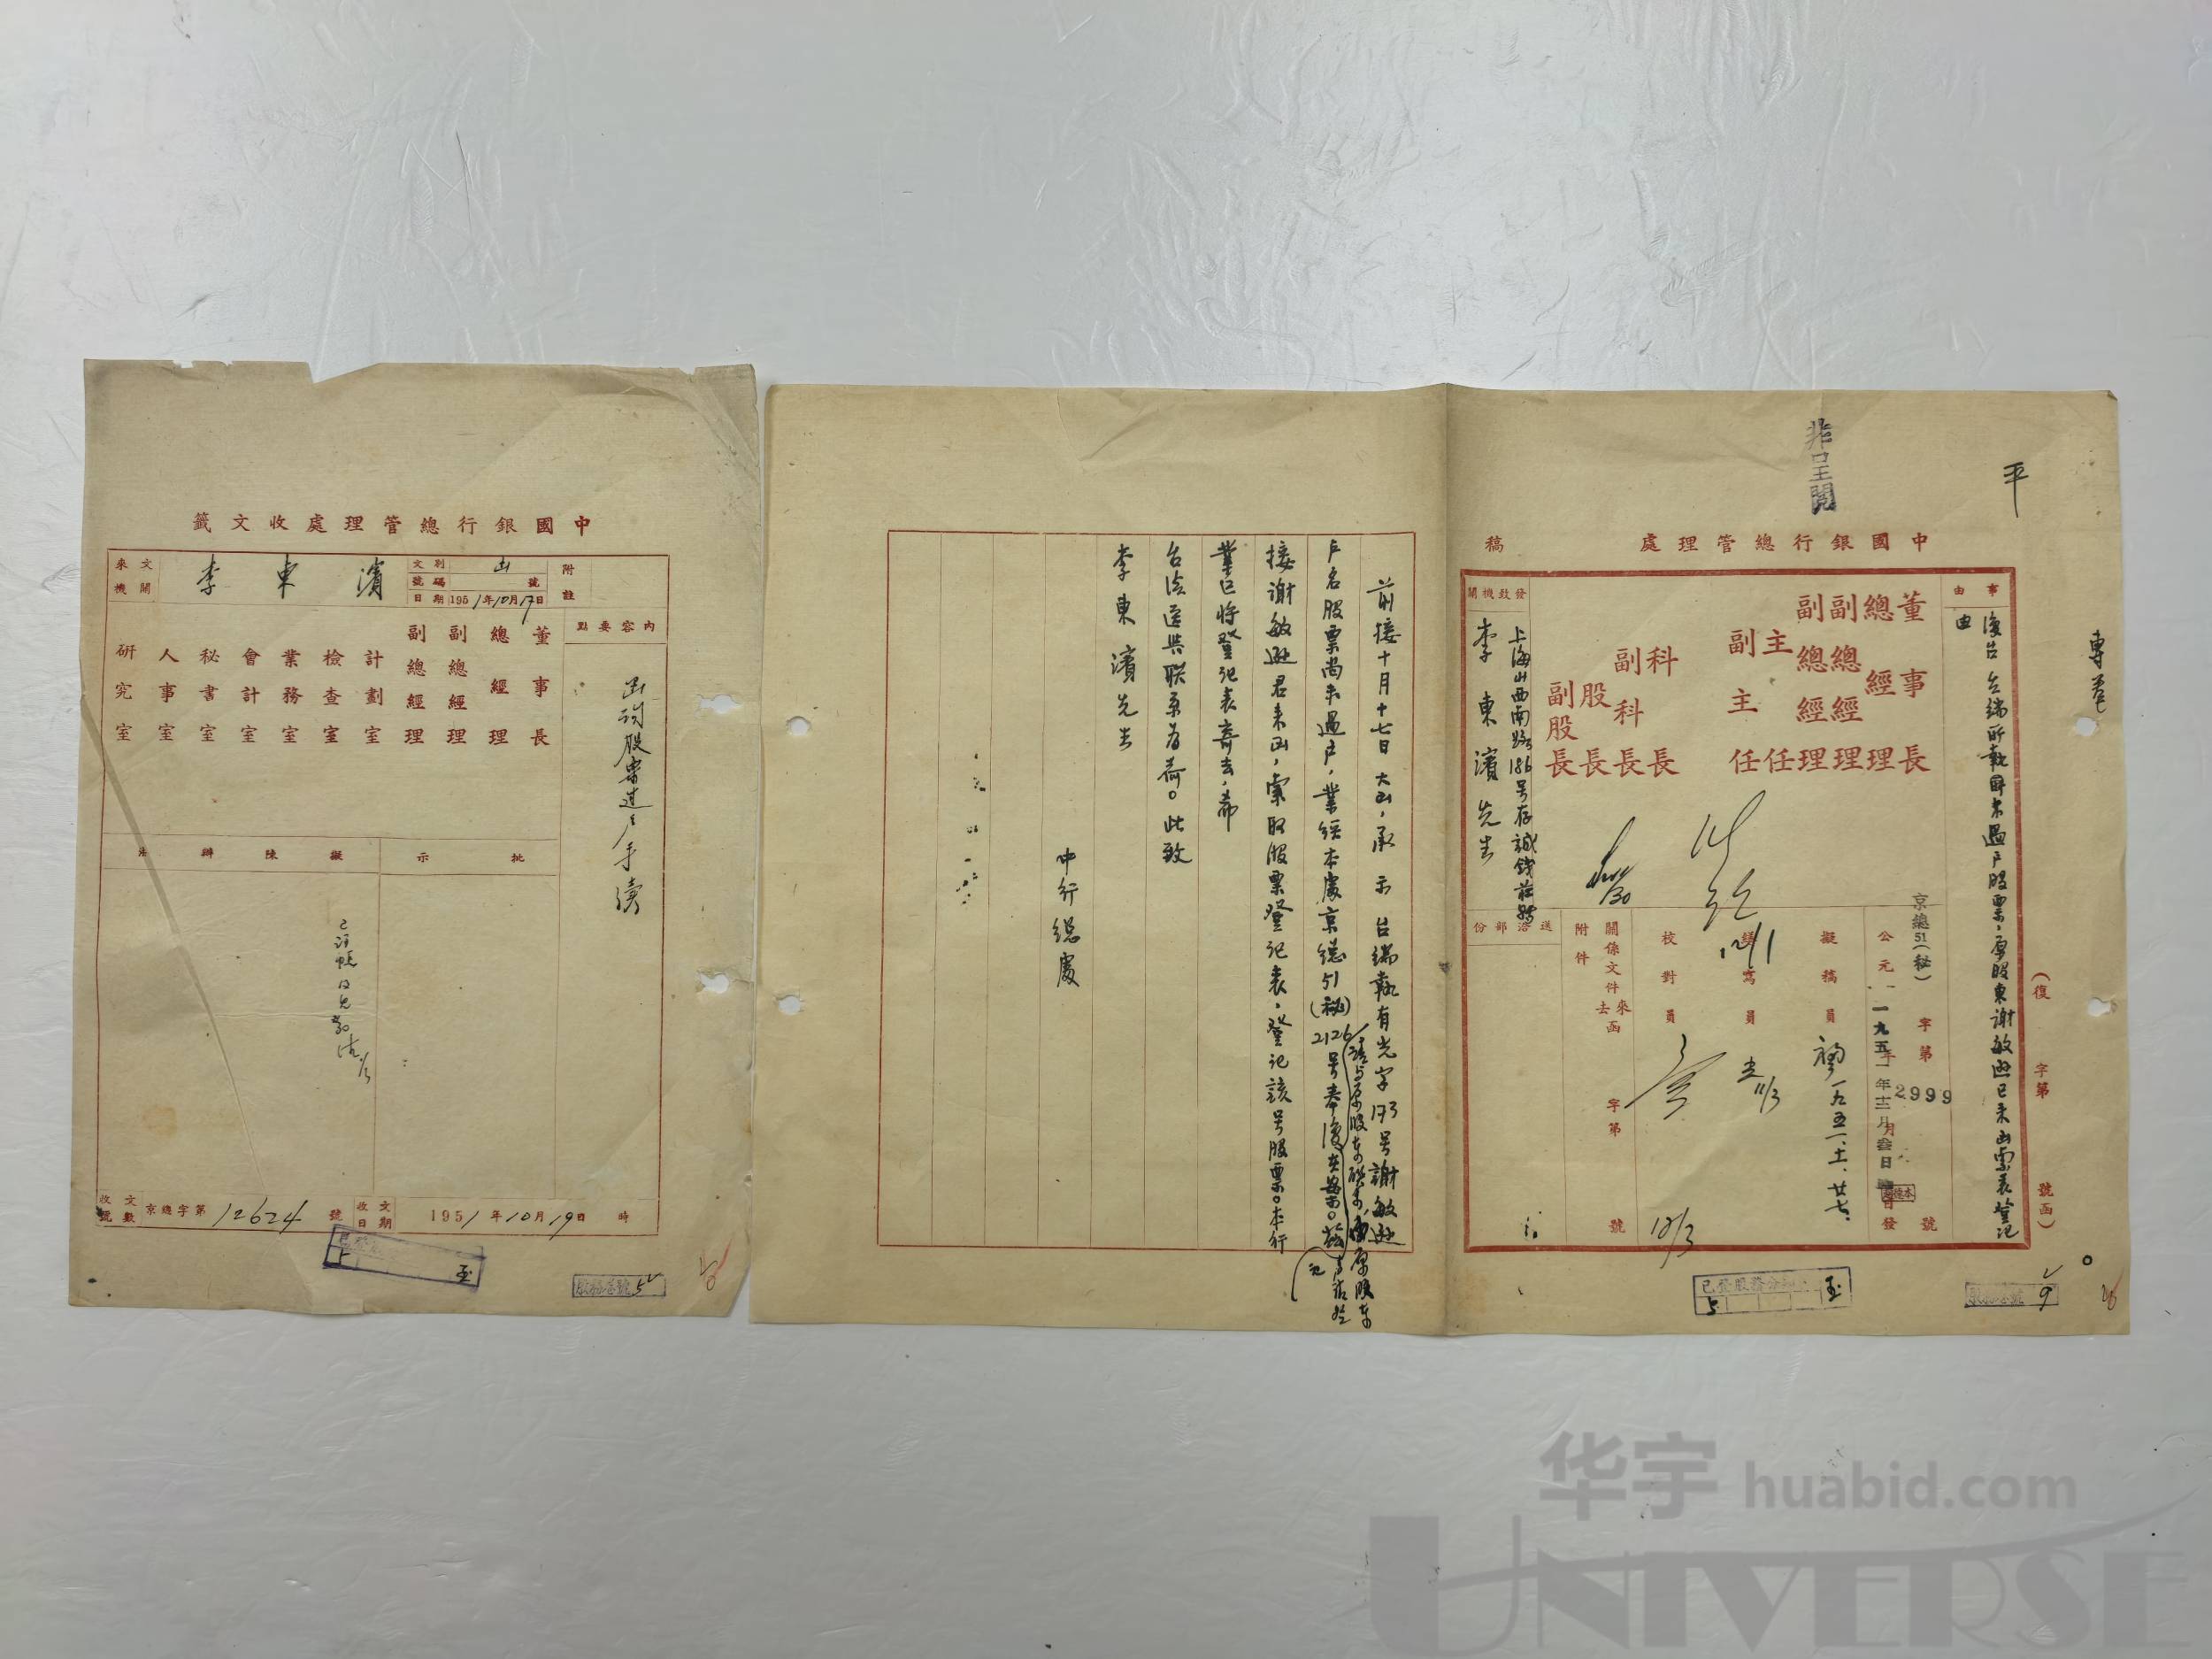 中國銀行總管理處收文籤
來文機關
李東濱
文別
函
號碼
號
日期
1951年10月17日
附註
內容要點
函詢股票過户手續
董事長
總經理
副總經理
副總經理
計劃室
檢查室
業務室
會計室
秘書室
人事室
研究室
批示
擬陳辦法
收文號數
京總字第12624號
收文日期
1951年10月19日
時
專卷
平
非呈閱
中國銀行總管理處
稿
(復
字第
號函)
事由
復告台端所執因未過户股票,原股東謝敏遜已來函索表登記
由
董事長
總經理
副總經理
副總經理
主任
副主任
科長
副科長
股長
副股長
發致機關
上海山西南路186号存誠錢莊轉
李東濱先生
京總51(秘)
字第
2999
號
公元一九五一年十二月叁日
發
擬稿員
一九五一、十一、廿七、
繕寫員
校對員
關係文件
來函
去
字第
號
附件
送洽部份
已發股務分
前接十月十七日大函,承示台端執有光字173号謝敏遜
户名股票尚未過户,業經本處京總51(秘)2126号奉復
請與原股東
接謝敏遜君来函,索取股票登記表,登記該号股票。本行
業已將登記表寄去,希
台洽逕與联系为荷。此致
李東濱先生
中行總處
华宇 huabid.com
UNIVERSE